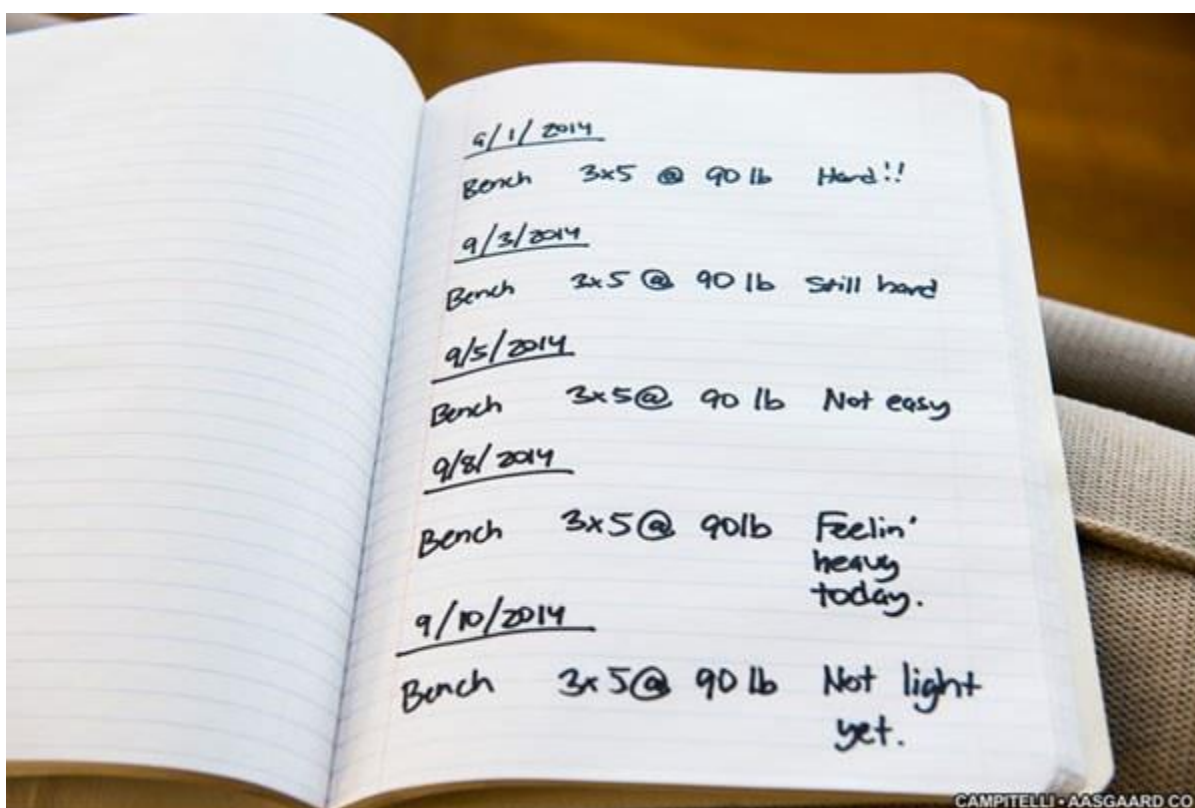 9/1/2014
Bench 3x5 @ 90 lb Hard!!
9/3/2014
Bench 3x5 @ 90 lb Still hard
9/5/2014
Bench 3x5@ 90 lb Not easy
9/8/2014
Bench 3x5@ 90lb Feelin'
heavy
today.
9/10/2014
Bench 3x5@ 90 lb Not light
yet.
CAMPITELLI • AASGAARD CO